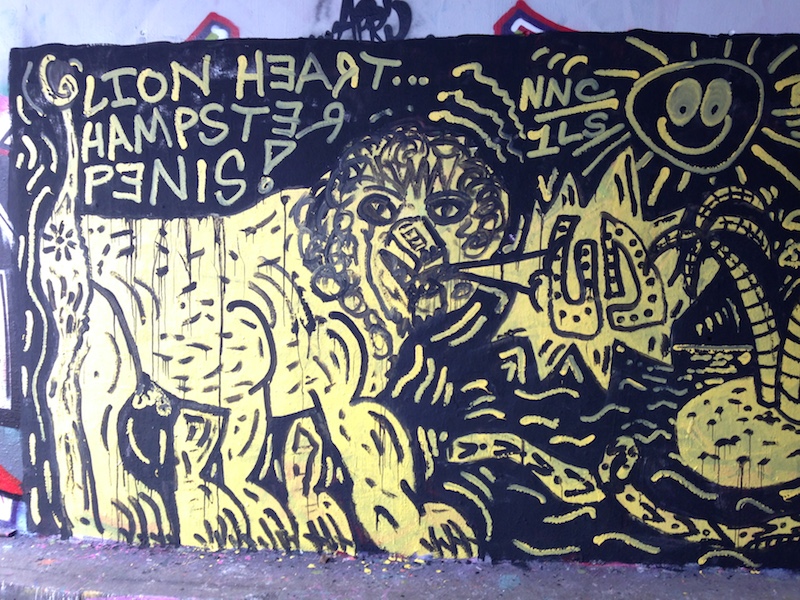 LION HEART...
HAMPSTER
PENIS!
NNC
ILS
UD